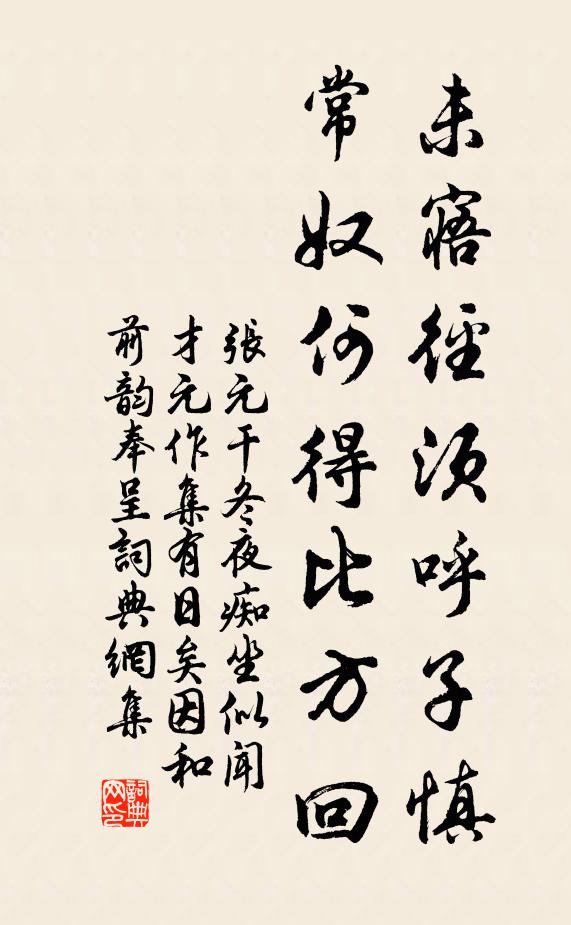 未寤徑須呼子慎
常奴何得比方回
張元干冬夜痴坐似聞
才元作集有日矣因和
前韵奉呈詞典網集
詞典
网印